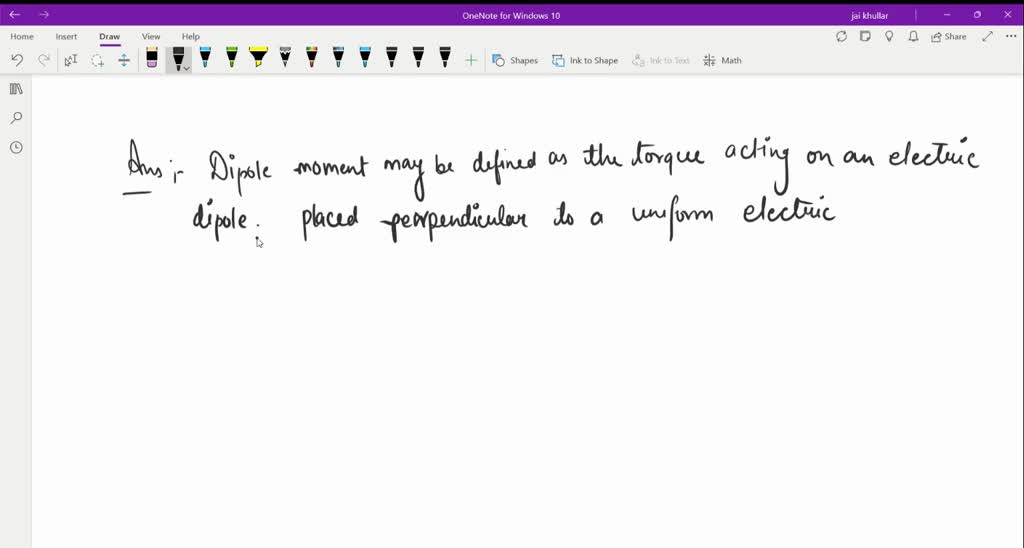 OneNote for Windows 10
jai khullar
Home Insert Draw View Help
Share
Shapes Ink to Shape Ink to Text Math
Ans :- Dipole moment may be defined as the torque acting on an electric
dipole. placed perpendicular to a uniform electric